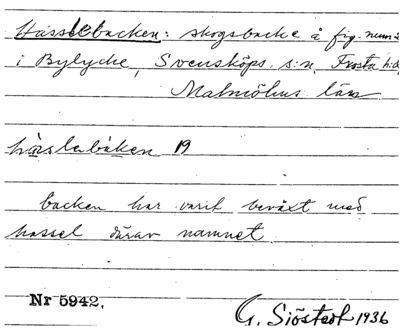 Hasslebacken: skogsbacke å fig. num
i Bylycke, Svensköps s:n, Frosta h:d
Malmöhus län
backen har varit beväxt med
hassel därav namnet
Nr 5942.
G. Sjöstedt 1936